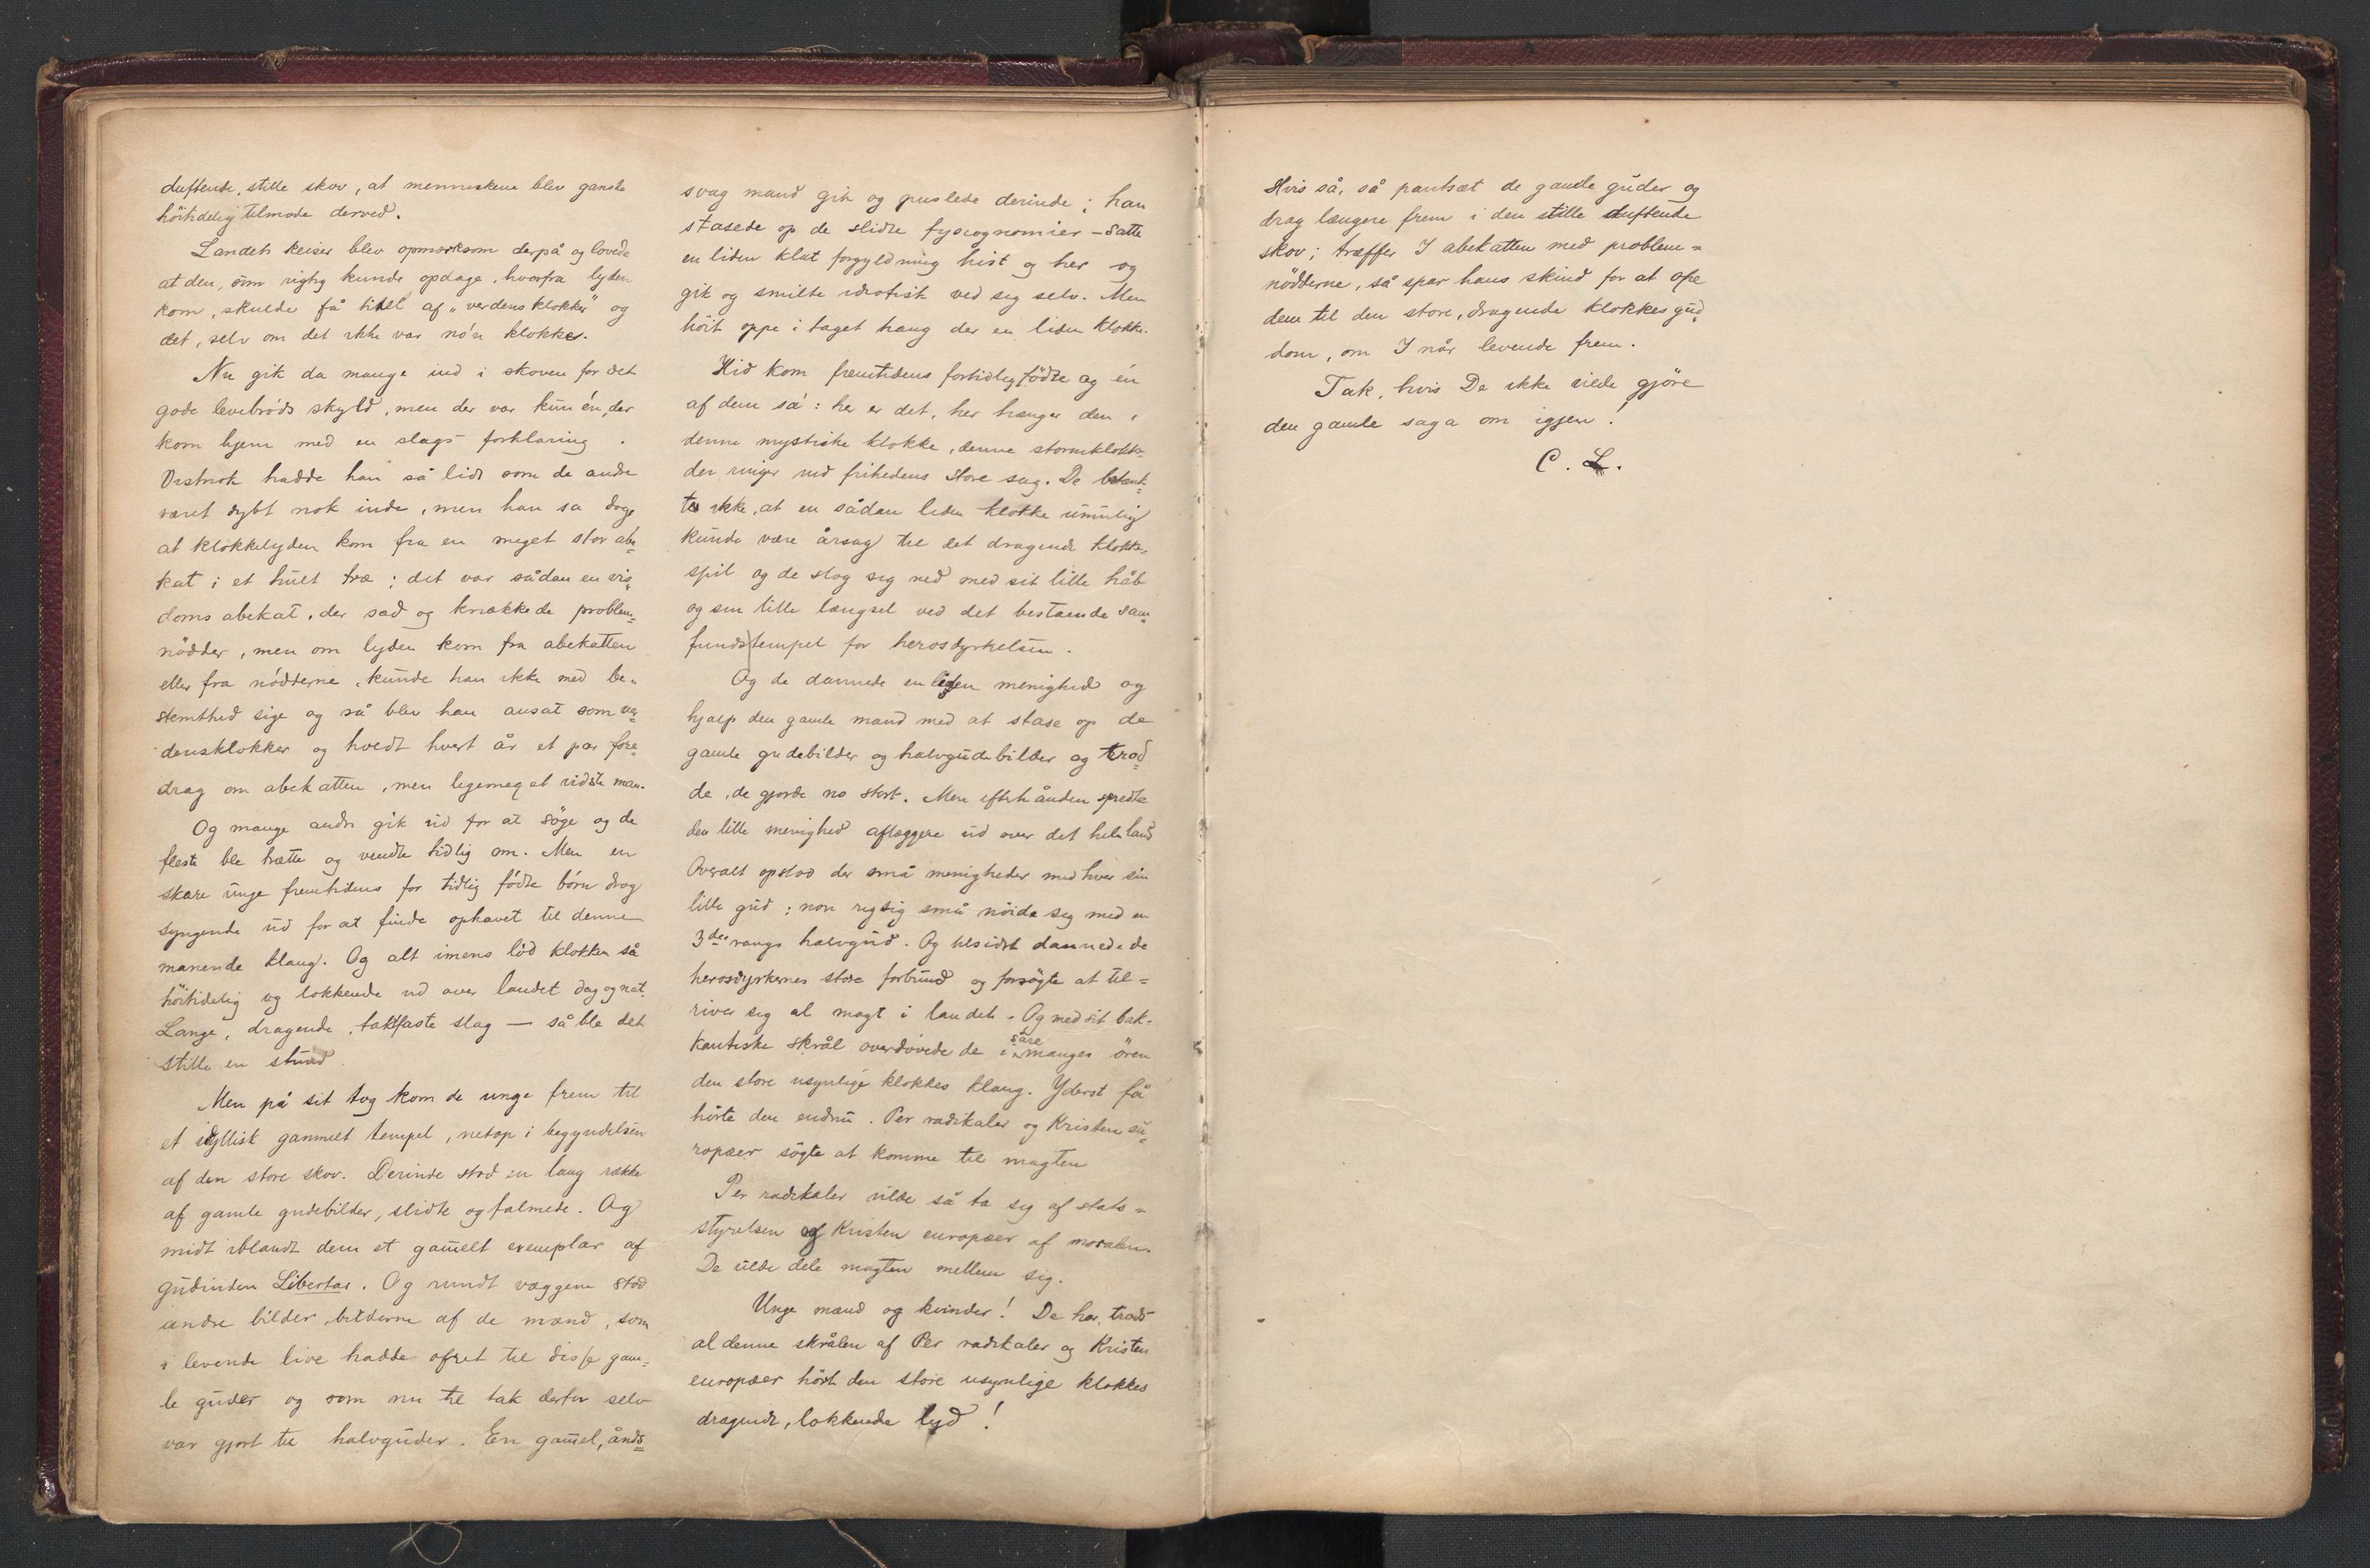 duftende, stille skov, at menneskene blev ganske
höitidelig tilmode derved.
Landets keiser blev opmerksom derpå og lovede
at den, som rigtig kunde opdage, hvorfra lyden
kom, skulde få titel af „verdensklokker" og
det, selv om det ikke var no'n klokkes.
Nu gik da mange ind i skoven for det
gode levebröds skyld, men der var kun én, der
kom hjem med en slags forklaring.
Vistnok hadde han så lidt som de andre
været dybt nok inde, men han sa dog
at klokkelyden kom fra en meget stor abe-
kat i et hult træ; det var sådan en vis-
doms abekat, der sad og knækkede problem-
nödder, men om lyden kom fra abekatten
eller fra nödderne, kunde han ikke med be-
stemthed sige og så blev han ansat som ver-
densklokker og holdt hvert år et par fore-
drag om abekatten, men ligemeget vidste man.
Og mange andre gik ud for at söge og de
fleste ble trætte og vendte tidlig om. Men en
skare unge fremtidens for tidlig födte börn drog
syngende ud for at finde ophavet til denne
manende klang. Og alt imens löd klokken så
höitidelig og lokkende ud over landet dag og nat.
Lange, dragende, taktfaste slag — så ble det
stille en stund.
Men på sit tog kom de unge frem til
et idyllisk gammelt tempel, netop i begyndelsen
af den store skov. Derinde stod en lang række
af gamle gudebilder, slidte og falmede. Og
midt iblandt dem et gam̄elt exemplar af
gudinden Libertas. Og rundt væggene stod
andre bilder, bilderne af de mænd, som
i levende live hadde ofret til disse gam-
le guder og som nu til tak derfor selv
var gjort til halvguder. En gam̄el, ånds-
svag mand gik og puslede derinde; han
stasede op de slidte fysiognomier – satte
en liden klat forgyldning hist og her og
gik og smilte idiotisk ved sig selv. Men
höit oppe i taget hang der en liden klokke.
Hid kom fremtidens fortidlig födte og én
af dem sa': her er det, her hænger den,
denne mystiske klokke, denne stormklokke
der ringer ind frihedens store sag. De betænk-
te ikke, at en sådan liden klokke umulig
kunde være årsag til det dragende klokke-
spil og de slog sig ned med sit lille håb
og sin lille længsel ved det bestaende sam-
funds tempel for herosdyrkelsen.
Og de dannede en liden menighed og
hjalp den gamle mand med at stase op de
gamle gudebilder og halvgudebilder og trod-
de, de gjorde no stort. Men efterhånden spredte
den lille menighed aflæggere ud over det hele land
Overalt opstod der små menigheder med hver sin
lille gud; non rigtig små nöide sig med en
3die rangs halvgud. Og tilsidst dannede de
herosdyrkernes store forbund og forsögte at til-
rive sig al magt i landet. Og med sit bak-
kantiske skrål overdövede de i såre manges ören
den store usynlige klokkes klang. Yderst få
hörte den endnu. Per radikaler og Kristen eu-
ropæer sögte at komme til magten
Per radikaler vilde så ta sig af stats-
styrelsen og Kristen europæer af moralen.
De vilde dele magten mellem sig.
Unge mænd og kvinder! De har, trods
al denne skrålen af Per radikaler og Kristen
europæer hört den store usynlige klokkes
dragende, lokkende lyd!
Hvis så, så pantsæt de gamle guder og
drag længere frem i den stille duftende
skov; træffer I abekatten med problem-
nödderne, så spar hans skind for at ofre
dem til den store, dragende klokkes gud-
dom, om I når levende frem.
Tak, hvis De ikke vilde gjöre
den gamle saga om igjen!
C. L.